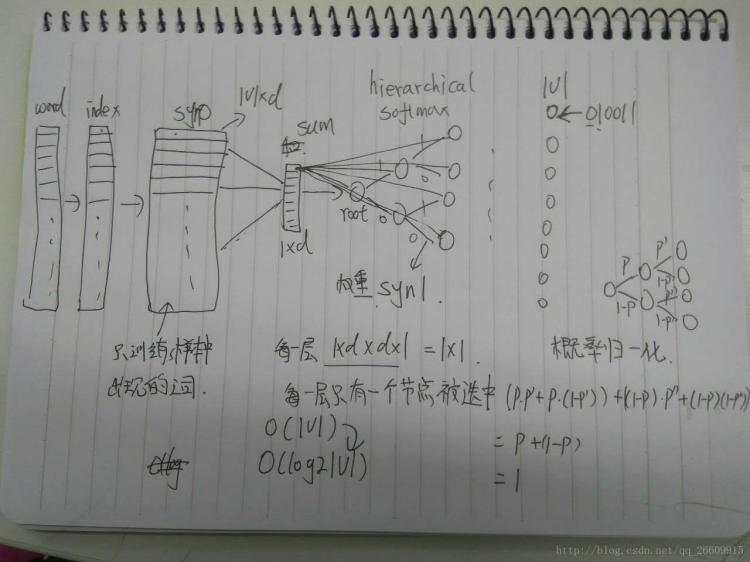 word
index
syn0
|V|xd
sum
1xd
hierarchical
softmax
1
1
0
root
0
1
0
权重 syn1.
|V|
0 ← 010011
P
1-P
P'
1-P'
P''
1-P''
只训练样本中
出现的词.
每一层 1xdxdx1 = 1x1.
概率归一化.
每一层只有一个节点被选中 (P·P'+P·(1-P'))+((1-P)·P''+(1-P)(1-P''))
= P+(1-P)
= 1
O(|V|)
O(log2|V|)
http://blog.csdn.net/qq_26609915